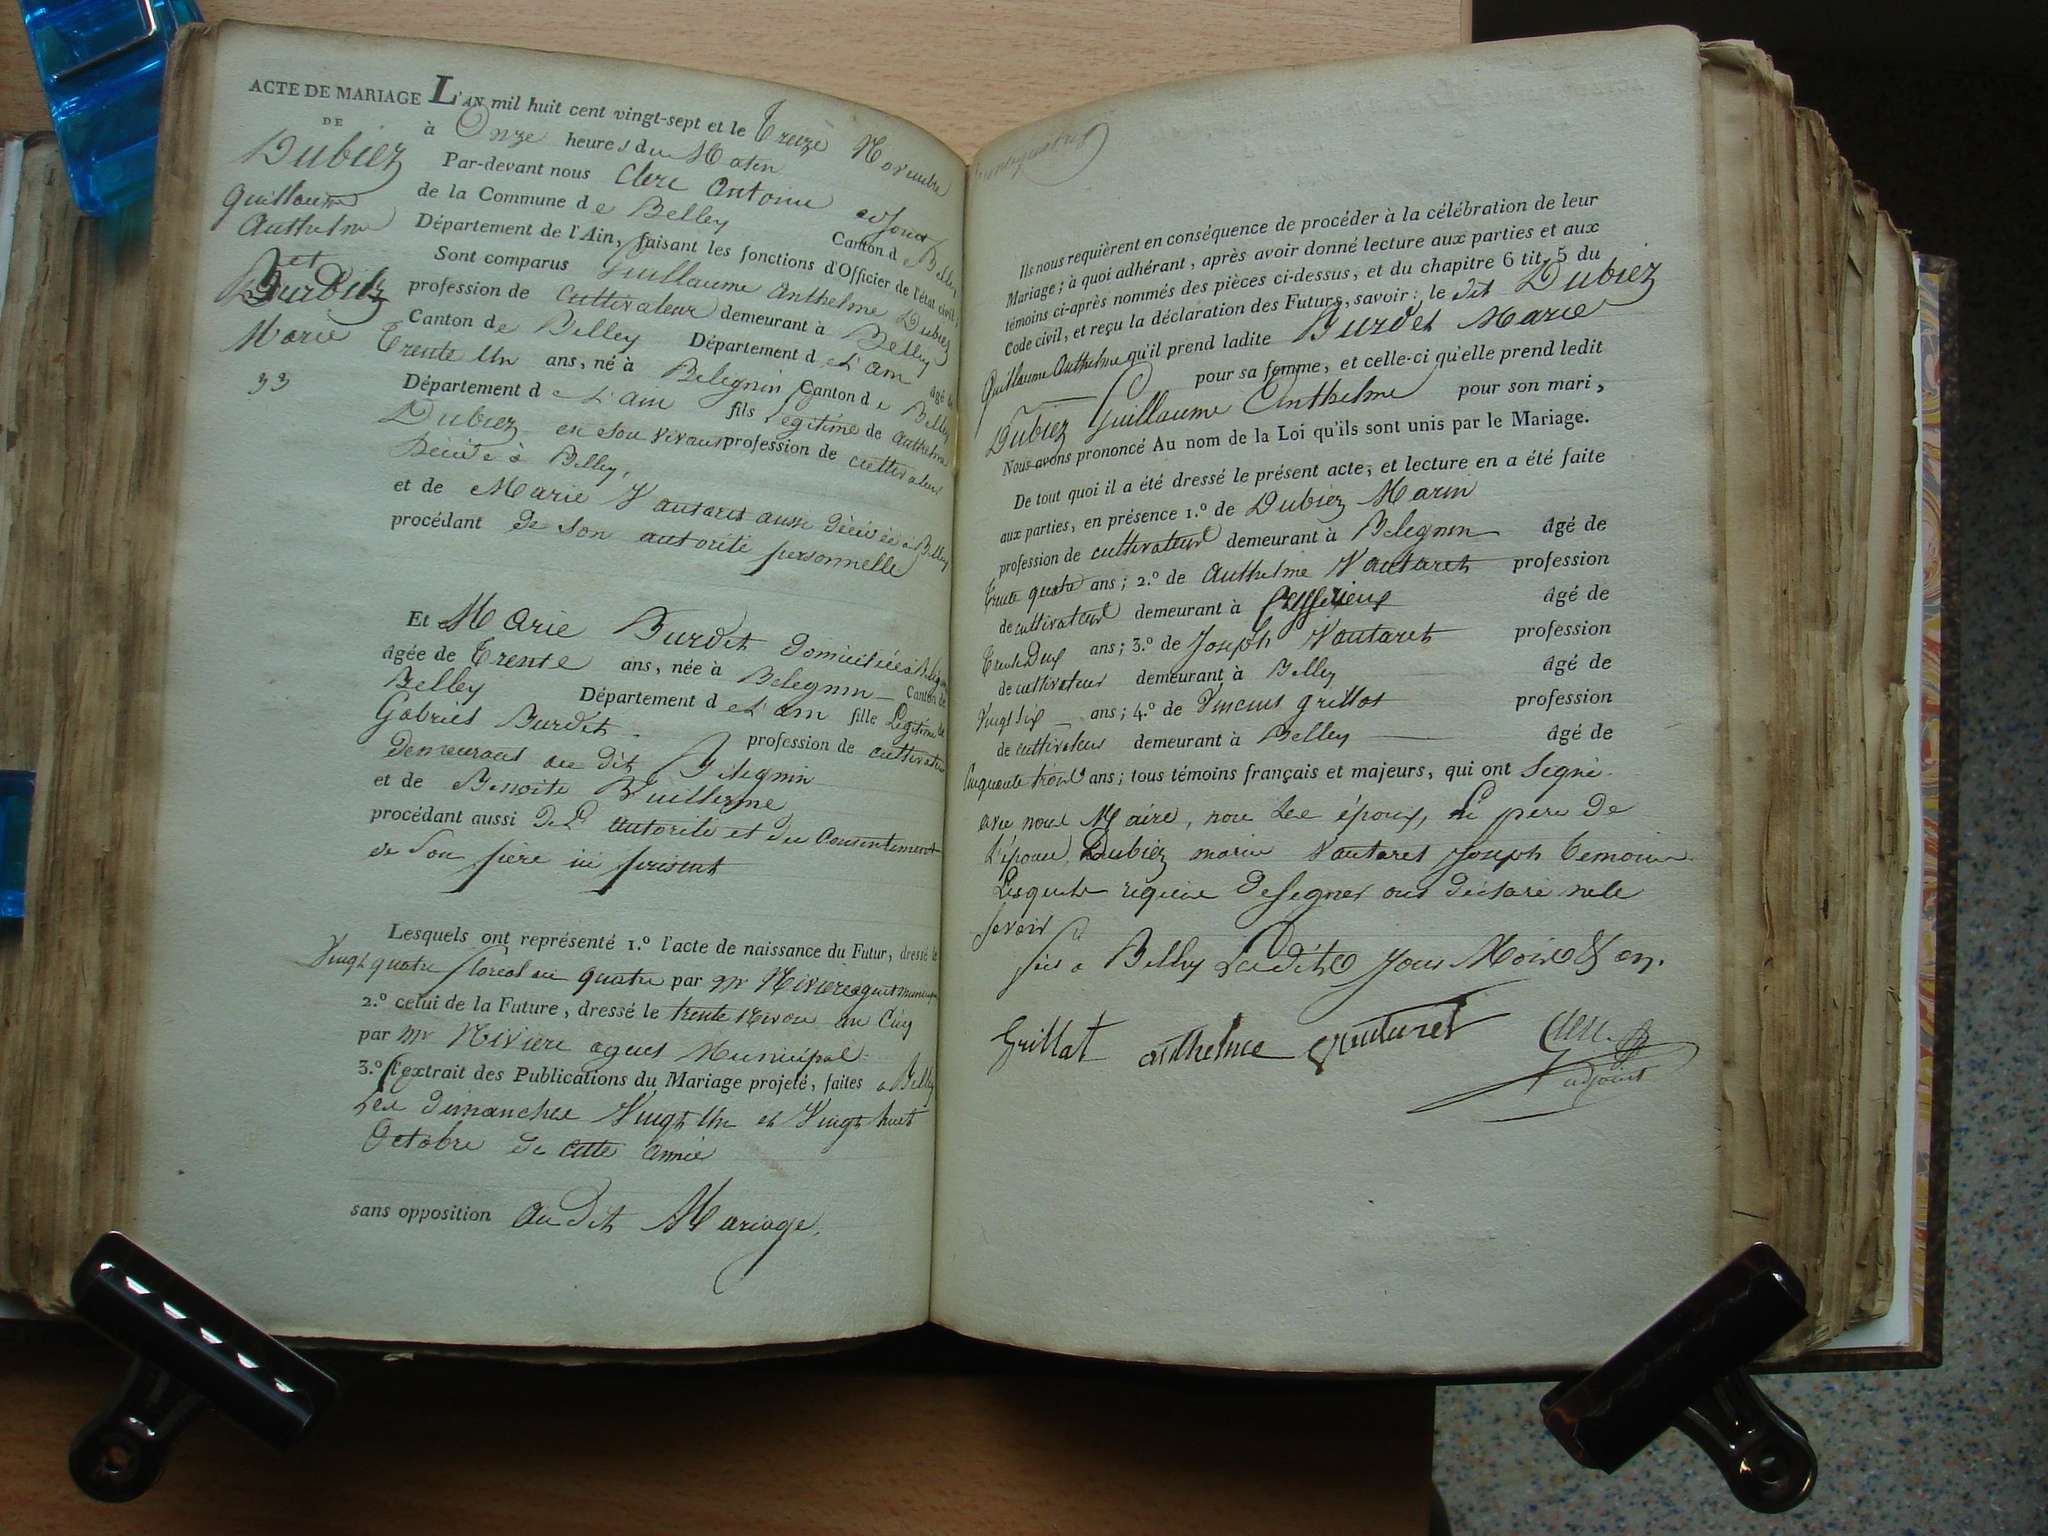 ACTE DE MARIAGE
DE
Dubiez
Guillaume
Anthelme
et
Burdet
Marie
33
L'AN mil huit cent vingt-sept et le Treize Novembre
à Onze heures du Matin
Par-devant nous Clerc Antoine adjoint
de la Commune de Belley Canton de Belley
Département de l'Ain, faisant les fonctions d'Officier de l'état civil,
Sont comparus Guillaume Anthelme Dubiez
profession de Cultivateur demeurant à Belley
Canton de Belley Département de L'ain âgé de
Trente Un ans, né à Belegnin Canton de Belley
Département de L'ain fils Légitime de Anthelme
Dubiez en son vivant profession de cultivateur
Décédé à Belley,
et de Marie Vautaret aussi décédée à Belley
procédant de son autorité personnelle
Et Marie Burdet domiciliée à Belegnin
âgée de Trente ans, née à Belegnin Canton de
Belley Département de L'ain fille Légitime de
Gabriel Burdet profession de cultivateur
demeurant au dit Belegnin
et de Benoite Vuillerme
procédant aussi de L'autorité et du Consentement
de Son père ici présent
Lesquels ont représenté 1.º l'acte de naissance du Futur, dressé le
Vingt quatre floréal an quatre par mr Riviere agent municipal
2.º celui de la Future, dressé le trente Nivose an Cinq
par mr Riviere agent Municipal
3.º l'extrait des Publications du Mariage projeté, faites à Belley
Les dimanches Vingt Un et Vingt huit
Octobre de cette année
sans opposition au dit Mariage.
Ils nous requièrent en conséquence de procéder à la célébration de leur
Mariage; à quoi adhérant, après avoir donné lecture aux parties et aux
témoins ci-après nommés des pièces ci-dessus, et du chapitre 6 tit. 5 du
Code civil, et reçu la déclaration des Futurs, savoir: le dit Dubiez
Guillaume Anthelme qu'il prend ladite Burdet Marie
pour sa femme, et celle-ci qu'elle prend ledit
Dubiez Guillaume Anthelme pour son mari,
Nous avons prononcé Au nom de la Loi qu'ils sont unis par le Mariage.
De tout quoi il a été dressé le présent acte, et lecture en a été faite
aux parties, en présence 1.º de Dubiez Marin
profession de cultivateur demeurant à Belegnin âgé de
Trente quatre ans; 2.º de Anthelme Vautaret profession
de cultivateur demeurant à âgé de
Trente Deux ans; 3.º de Joseph Vautaret profession
de cultivateur demeurant à Belley âgé de
Vingt Six ans; 4.º de Vincent Grillot profession
de cultivateur demeurant à Belley âgé de
Cinquante trois ans; tous témoins français et majeurs, qui ont Signé
avec nous Maire, non Les époux, Le père de
L'épouse, Dubiez marin Vautaret Joseph Temoins
Lesquels requis de Signer ont déclaré ne le
savoir
fait à Belley Ledit Jour Mois & an.
Grillat anthelme vauturet Clerc
adjoint